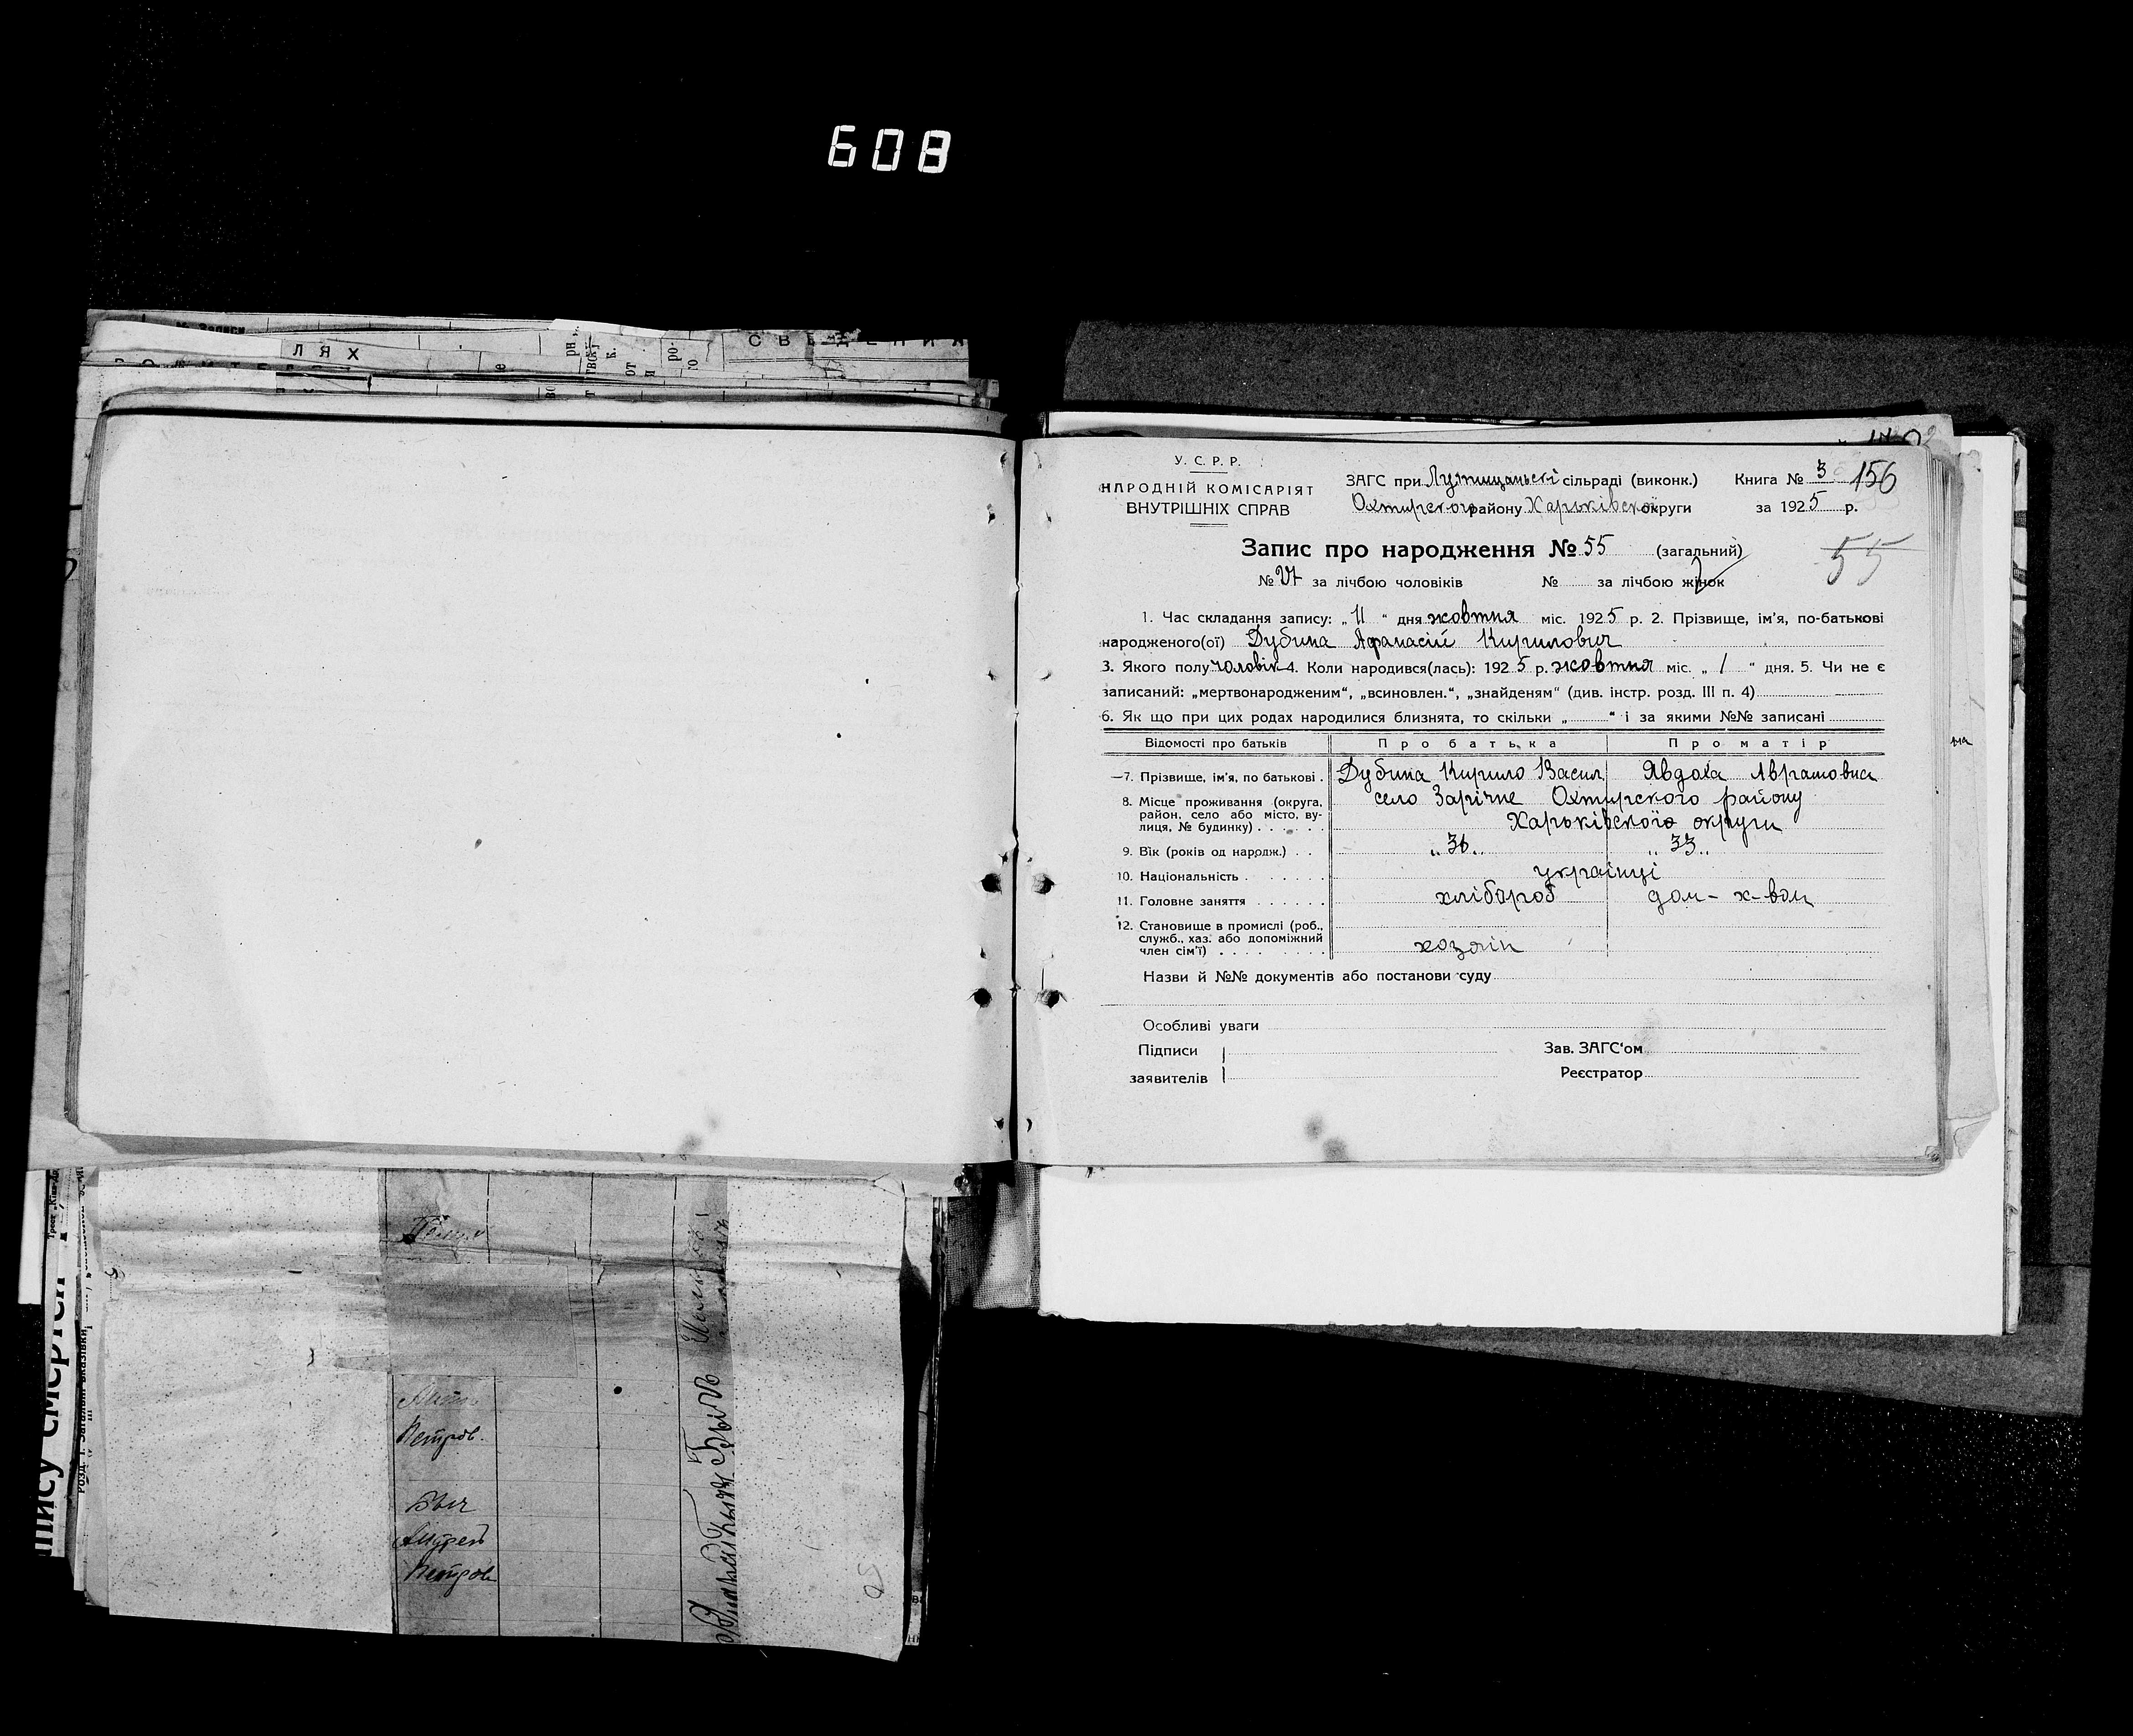 608
ЛЯХ
СВЕДЕНИЯ
У. С. Р. Р.
НАРОДНІЙ КОМІСАРІЯТ
ВНУТРІШНІХ СПРАВ
ЗАГС при Лутищанські сільраді (виконк.)
Охтирского району Харьківскої округи
Книга № 3 156
за 1925 р.
Запис про народження № 55 (загальний)
55
№ за лічбою чоловіків № за лічбою жінок
1. Час складання запису: „ 11 “ дня жовтня міс. 1925 р. 2. Прізвище, ім'я, по-батькові
народженого(ої) Дубина Афанасій Кирилович
3. Якого полу чоловік 4. Коли народився(лась): 1925 р. жовтня міс. „ 1 “ дня. 5. Чи не є
записаний: „мертвонародженим“, „всиновлен.“, „знайденям“ (див. інстр. розд. III п. 4)
6. Як що при цих родах народилися близнята, то скільки „ “ і за якими №№ записані
Відомості про батьків Про батька Про матір
7. Прізвище, ім'я, по батькові. Дубина Кирило Васил Явдоха Аврамовна
8. Місце проживання (округа, село Зарічне Охтирского району
район, село або місто, ву-
лиця, № будинку) Харьківскої округи
9. Вік (років од народж.) „ 36 „ „ 33 „
10. Національність українці
11. Головне заняття хлібороб дом- х-вом
12. Становище в промислі (роб.,
служб., хаз. або допоміжний
член сім'ї) хозяїн
Назви й №№ документів або постанови суду
Особливі уваги
Підписи
заявителів
Зав. ЗАГС'ом
Реєстратор
Петров.
Быч
Андрей
Петров